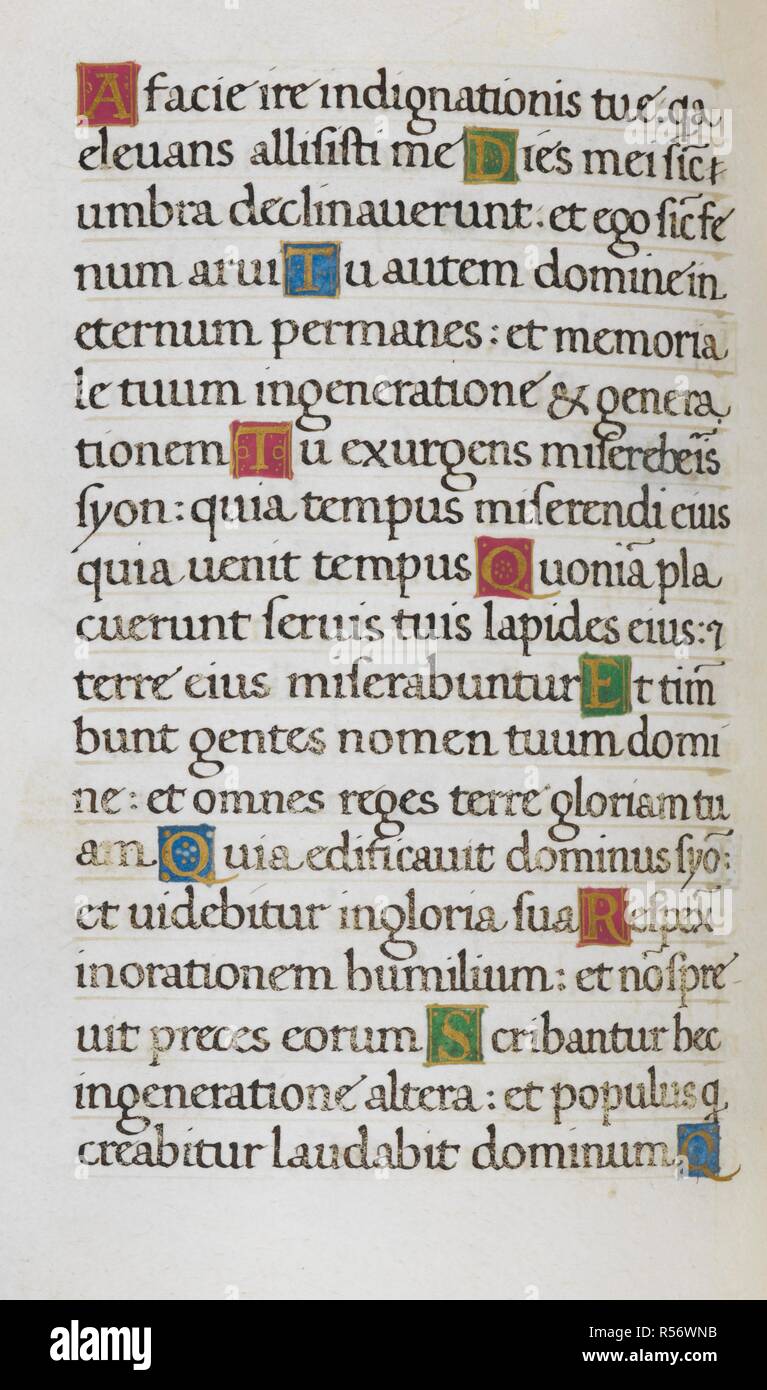 A facie ire indignationis tue. qa
eleuans allisisti me Dies mei sic̄t
umbra declinauerunt. et ego sic̄ fe
num arui Tu autem domine in
eternum permanes: et memoria
le tuum in generatione & genera
tionem Tu exurgens misereberis
syon: quia tempus miserendi eius
quia uenit tempus Quoniā pla
cuerunt seruis tuis lapides eius: ⁊
terre eius miserabuntur Et tim̄
bunt gentes nomen tuum domi
ne: et omnes reges terre gloriam tu
am Quia edificauit dominus syō:
et uidebitur in gloria sua Respex̄
in orationem humilium: et nō spre
uit preces eorum Scribantur hec
in generatione altera: et populus q
creabitur laudabit dominum Q
alamy
Image ID: R56WNB
www.alamy.com